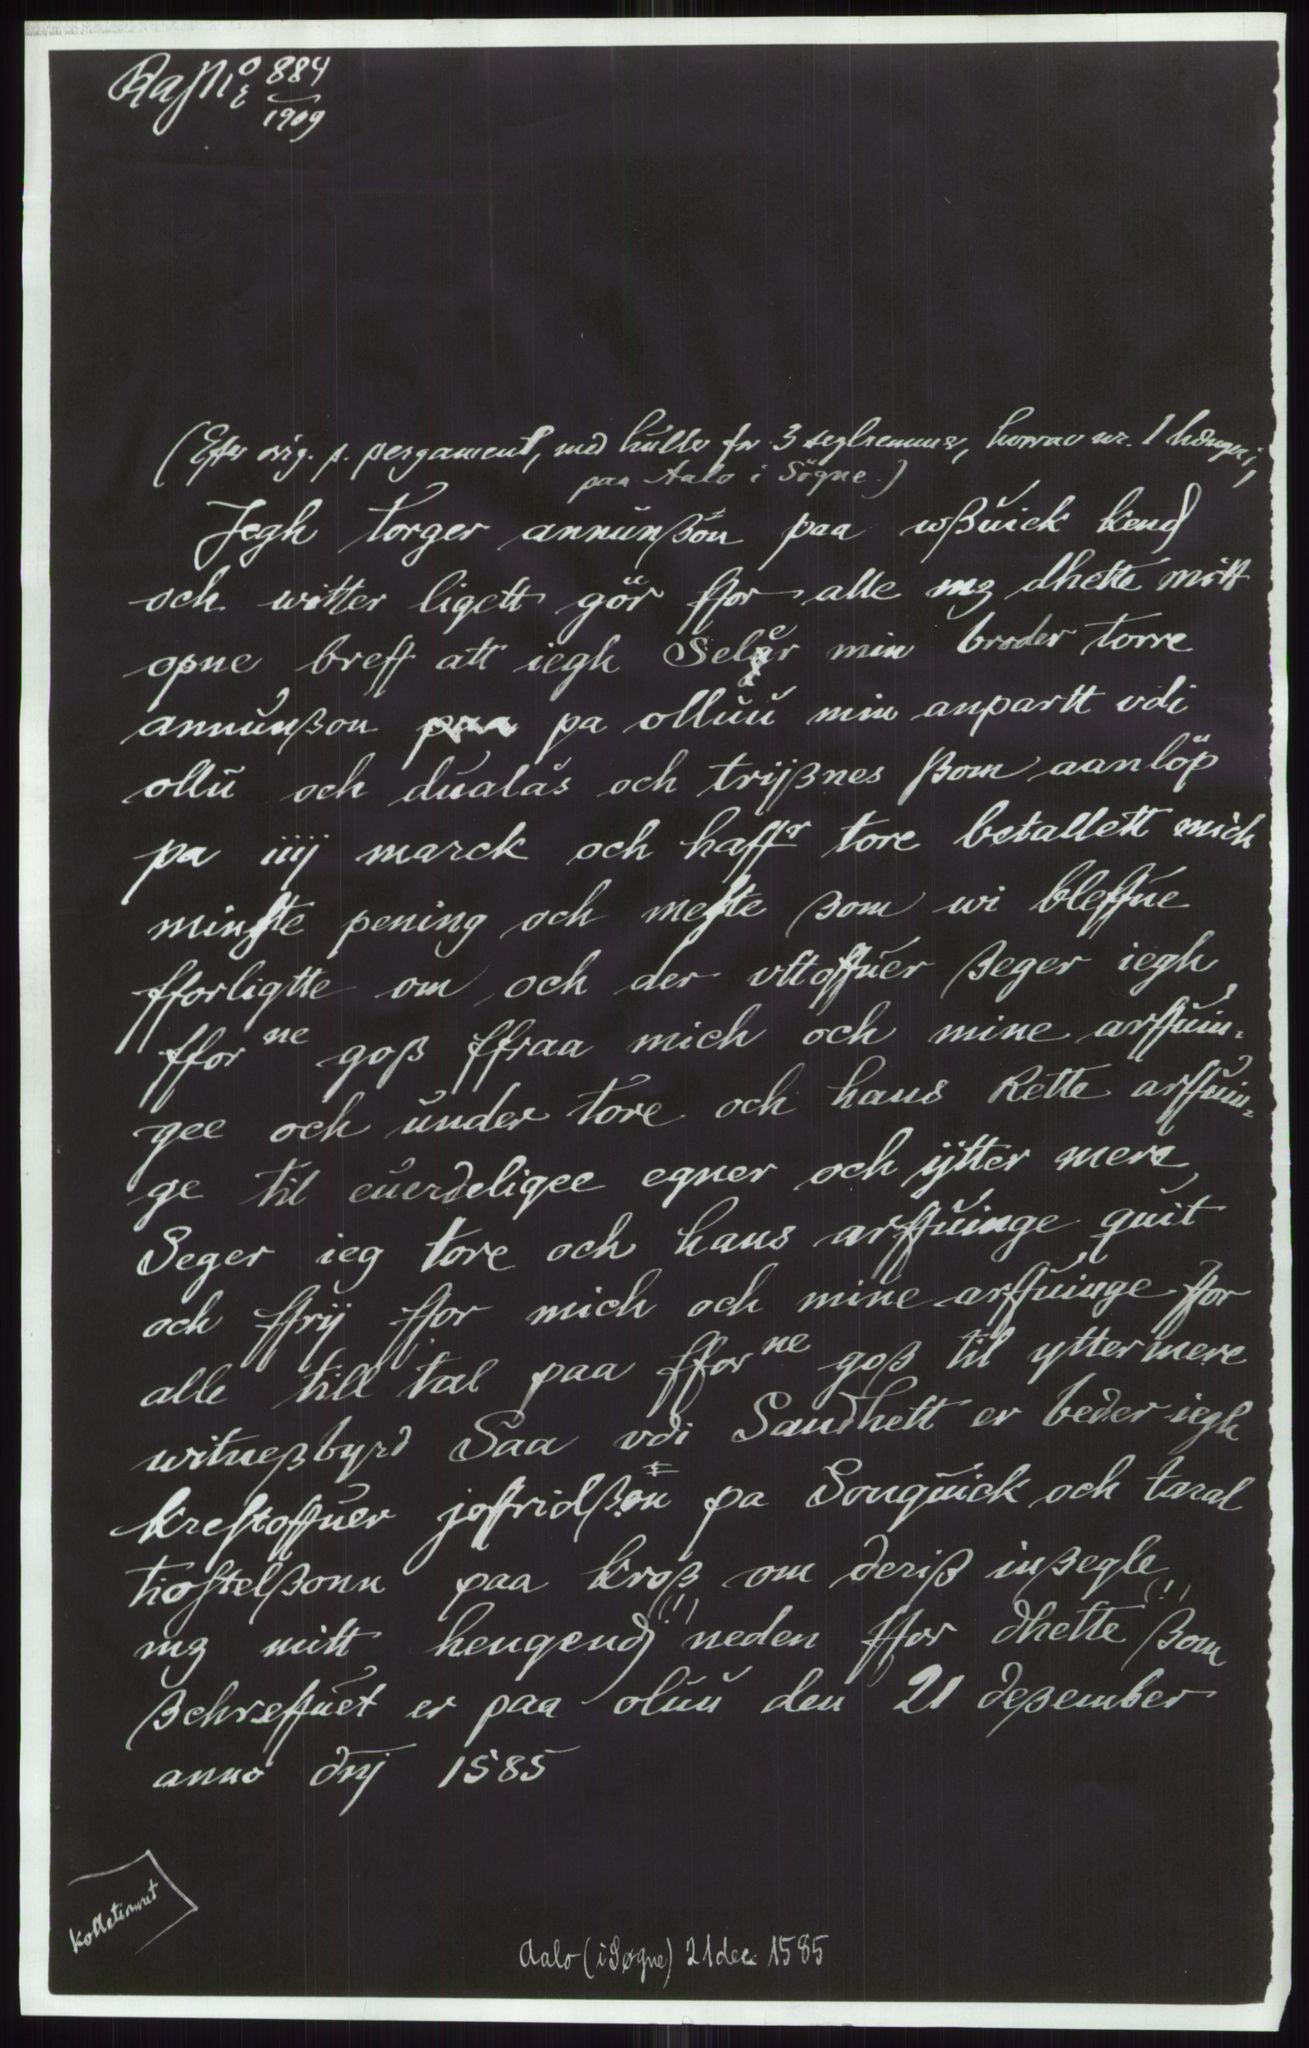 RaJNo 884
1909
(Efter orig. p. pergament, med huller for 3 seglremmer, hvorav nr. 1 hænger i,
paa Aalo i Søgne.)
Jegh torger annunßön paa wßuick kend
och witter ligett gör ffor alle mz dhette mitt
opne breff att iegh Seler min broder torre
annunßon pa olluu min anpartt vdi
ollu och dualås och trijßnes ßom aanlöp
pa iiij marck och haffr tore betallett mich
minste pening och meste ßom wi bleffue
fforligtte om och der vttoffuer ßeger iegh
ffor ne goß ffraa mich och mine arffuin-
gee och under tore och hans Rette arffuin-
ge til euerdeligee egner och ijtter mere
Seger ieg tore och hans arffuinge quit
och ffrij ffor mich och mine arffuinge ffor
alle till tal paa ffor ne goß til ytter mere
witneßbyrd Saa vdi Sandhett er beder iegh
krestoffuer joffridßøn pa Sonquick och taral
tiostelßonn paa kroß om deriß inßegle
mz mitt hengend (!) neden ffor dhette (!) ßom
ßchreffuet er paa oluu den 21 deßember
anno dnj 1585
kollationeret
Aalo (i Søgne) 21 dec. 1585